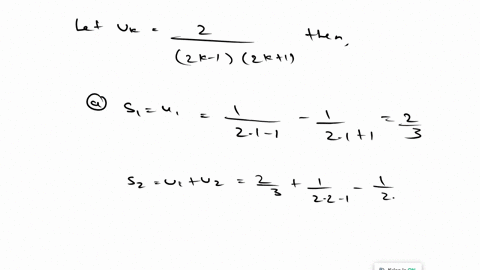 Let u_k = 2 / ((2k-1)(2k+1)) then,
ⓐ S_1 = u_1 = 1/(2·1-1) - 1/(2·1+1) = 2/3
S_2 = u_1 + u_2 = 2/3 + 1/(2·2-1) - 1/2.